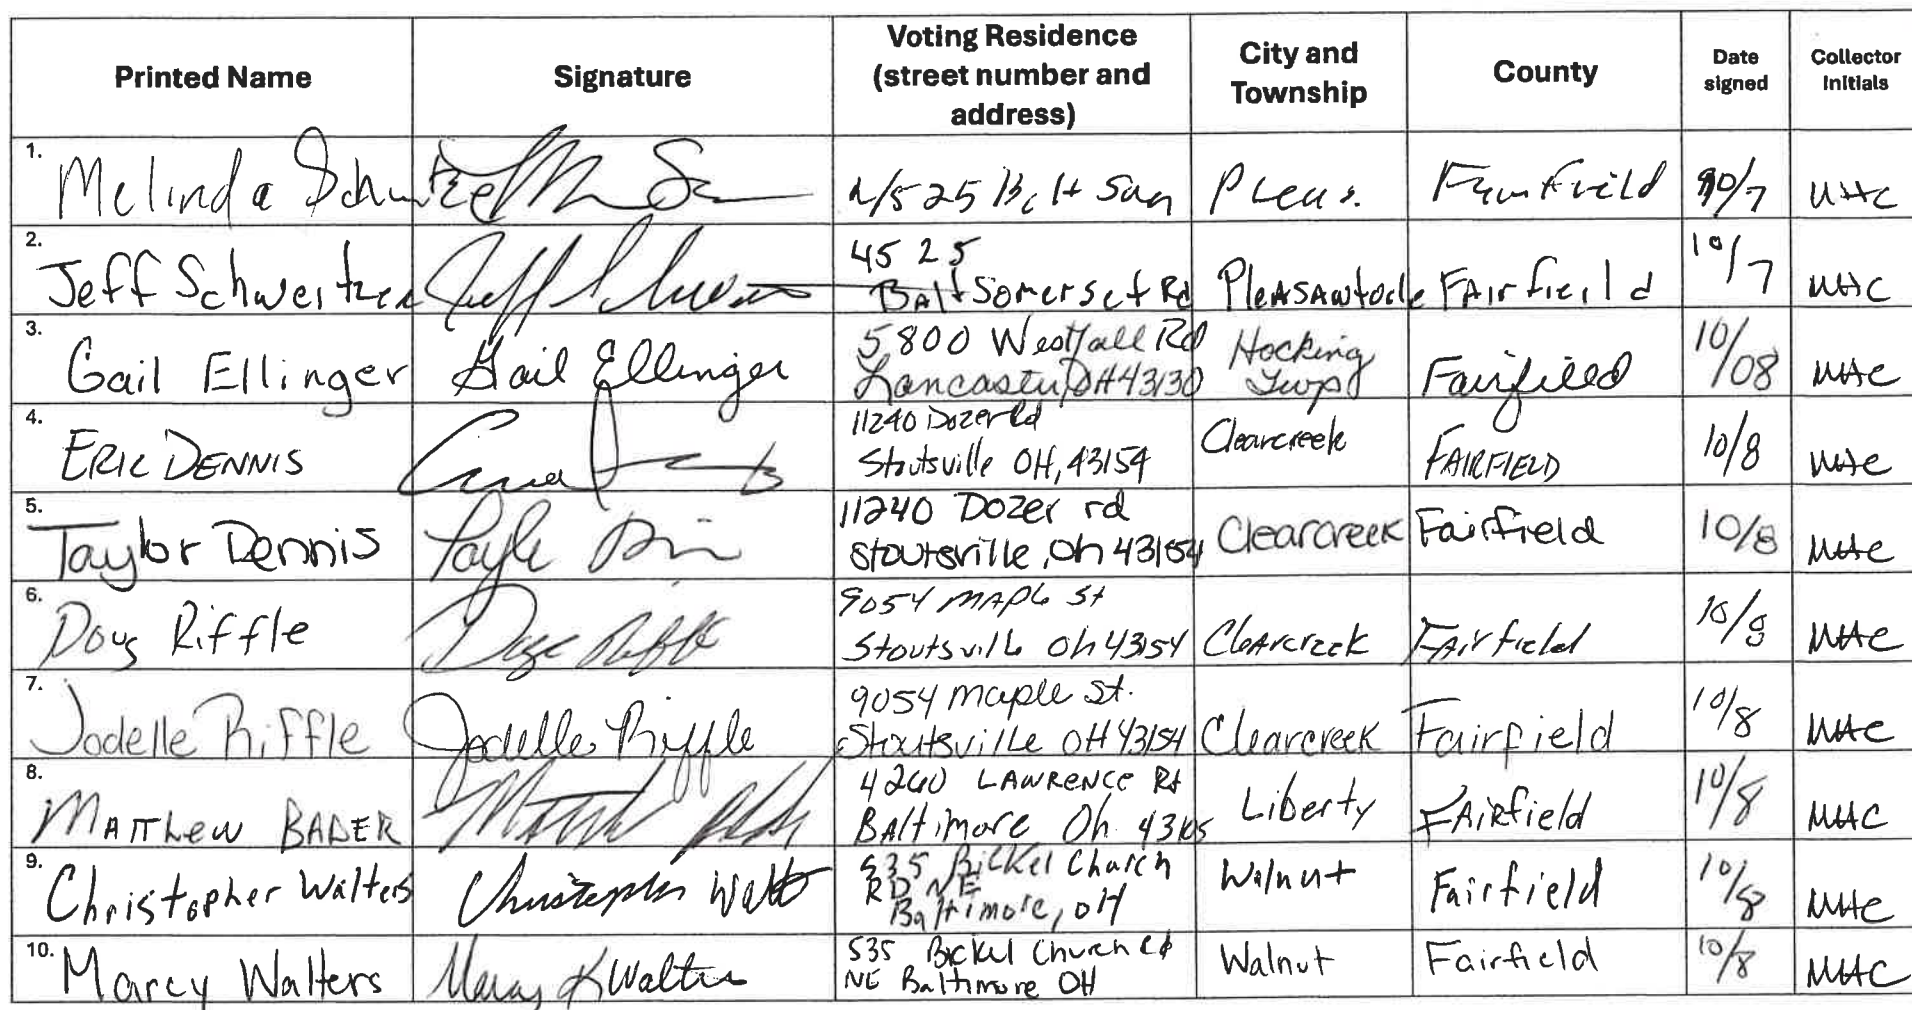 Printed Name Signature Voting Residence (street number and address) City and Township County Date signed Collector Initials
1. Melinda Schweitzer 4525 Balt Som Pleas. Fairfield 10/7 MAC
2. Jeff Schweitzer Jeff Schweitzer 4525 Balt Somerset Rd Fairfield 10/7 MAC
3. Gail Ellinger Gail Ellinger 5800 Westfall Rd Lancaster, OH 43130 Hocking Twp Fairfield 10/08 MAC
4. ERIC DENNIS 11240 Dozer Rd Stoutsville OH, 43154 Clearcreek FAIRFIELD 10/8 MAC
5. Taylor Dennis 11240 Dozer rd Stoutsville, Oh 43154 Clearcreek Fairfield 10/8 MAC
6. Doug Riffle Doug Riffle 9054 Maple St Stoutsville Oh 43154 Clearcreek Fairfield 10/8 MAC
7. Jodelle Riffle Jodelle Riffle 9054 Maple St. Stoutsville OH 43154 Clearcreek Fairfield 10/8 MAC
8. MATTHEW BADER 4260 LAWRENCE Rd Baltimore Oh. 43105 Liberty FAIRfield 10/8 MAC
9. Christopher Walters Christopher Walt 535 Bickel Church RD NE Baltimore, OH Walnut Fairfield 10/8 MAC
10. Marcy Walters Marcy K Walters 535 Bickel Church Rd NE Baltimore OH Walnut Fairfield 10/8 MAC